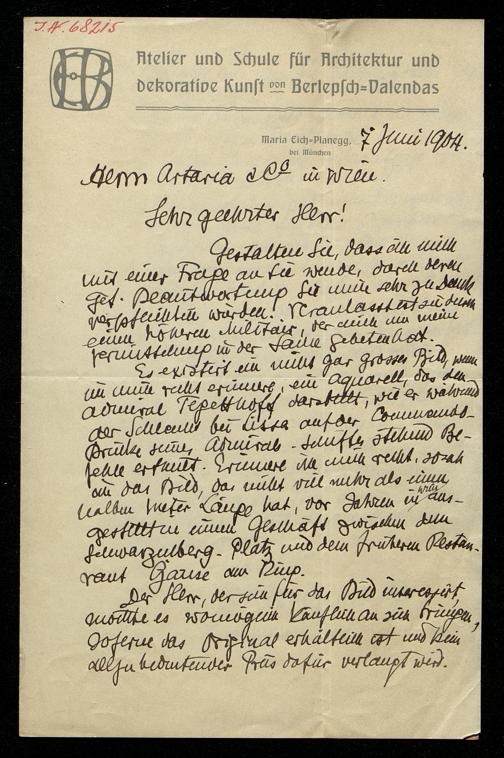 J.N. 68215
Atelier und Schule für Architektur und
dekorative Kunst von Berlepsch=Valendas
Maria Eich=Planegg, 7. Juni 1904.
bei München
Herrn Artaria & Co in Wien.
Sehr geehrter Herr!
Gestatten Sie, dass ich mich
mit einer Frage an Sie wende, durch deren
gef. Beantwortung Sie mich sehr zu Dank
verpflichten würden. Veranlasst ist dieselbe
einen höheren Militair, der mich um meine
Vermittelung in der Sache gebeten hat.
Es existirt ein nicht gar grosses Bild, wenn
ich mich recht erinnere, ein Aquarell, das den
Admiral Tegetthoff darstellt, wie er während
der Schlacht bei Lissa auf der Commando-
Brücke seines Admirals-Schiffes stehend Be-
fehle erteilt. Erinnere ich mich recht, so sah
ich das Bild, das nicht viel mehr als einen
halben Meter Länge hat, vor Jahren in Wien aus-
gestellt in einem Geschäft zwischen dem
Schwarzenberg-Platz und dem früheren Restau-
rant Gause am Ring.
Der Herr, der sich für das Bild interessirt,
möchte es womöglich käuflich an sich bringen,
soferne das Original erhältlich ist und kein
allzu bedeutender Preis dafür verlangt wird.